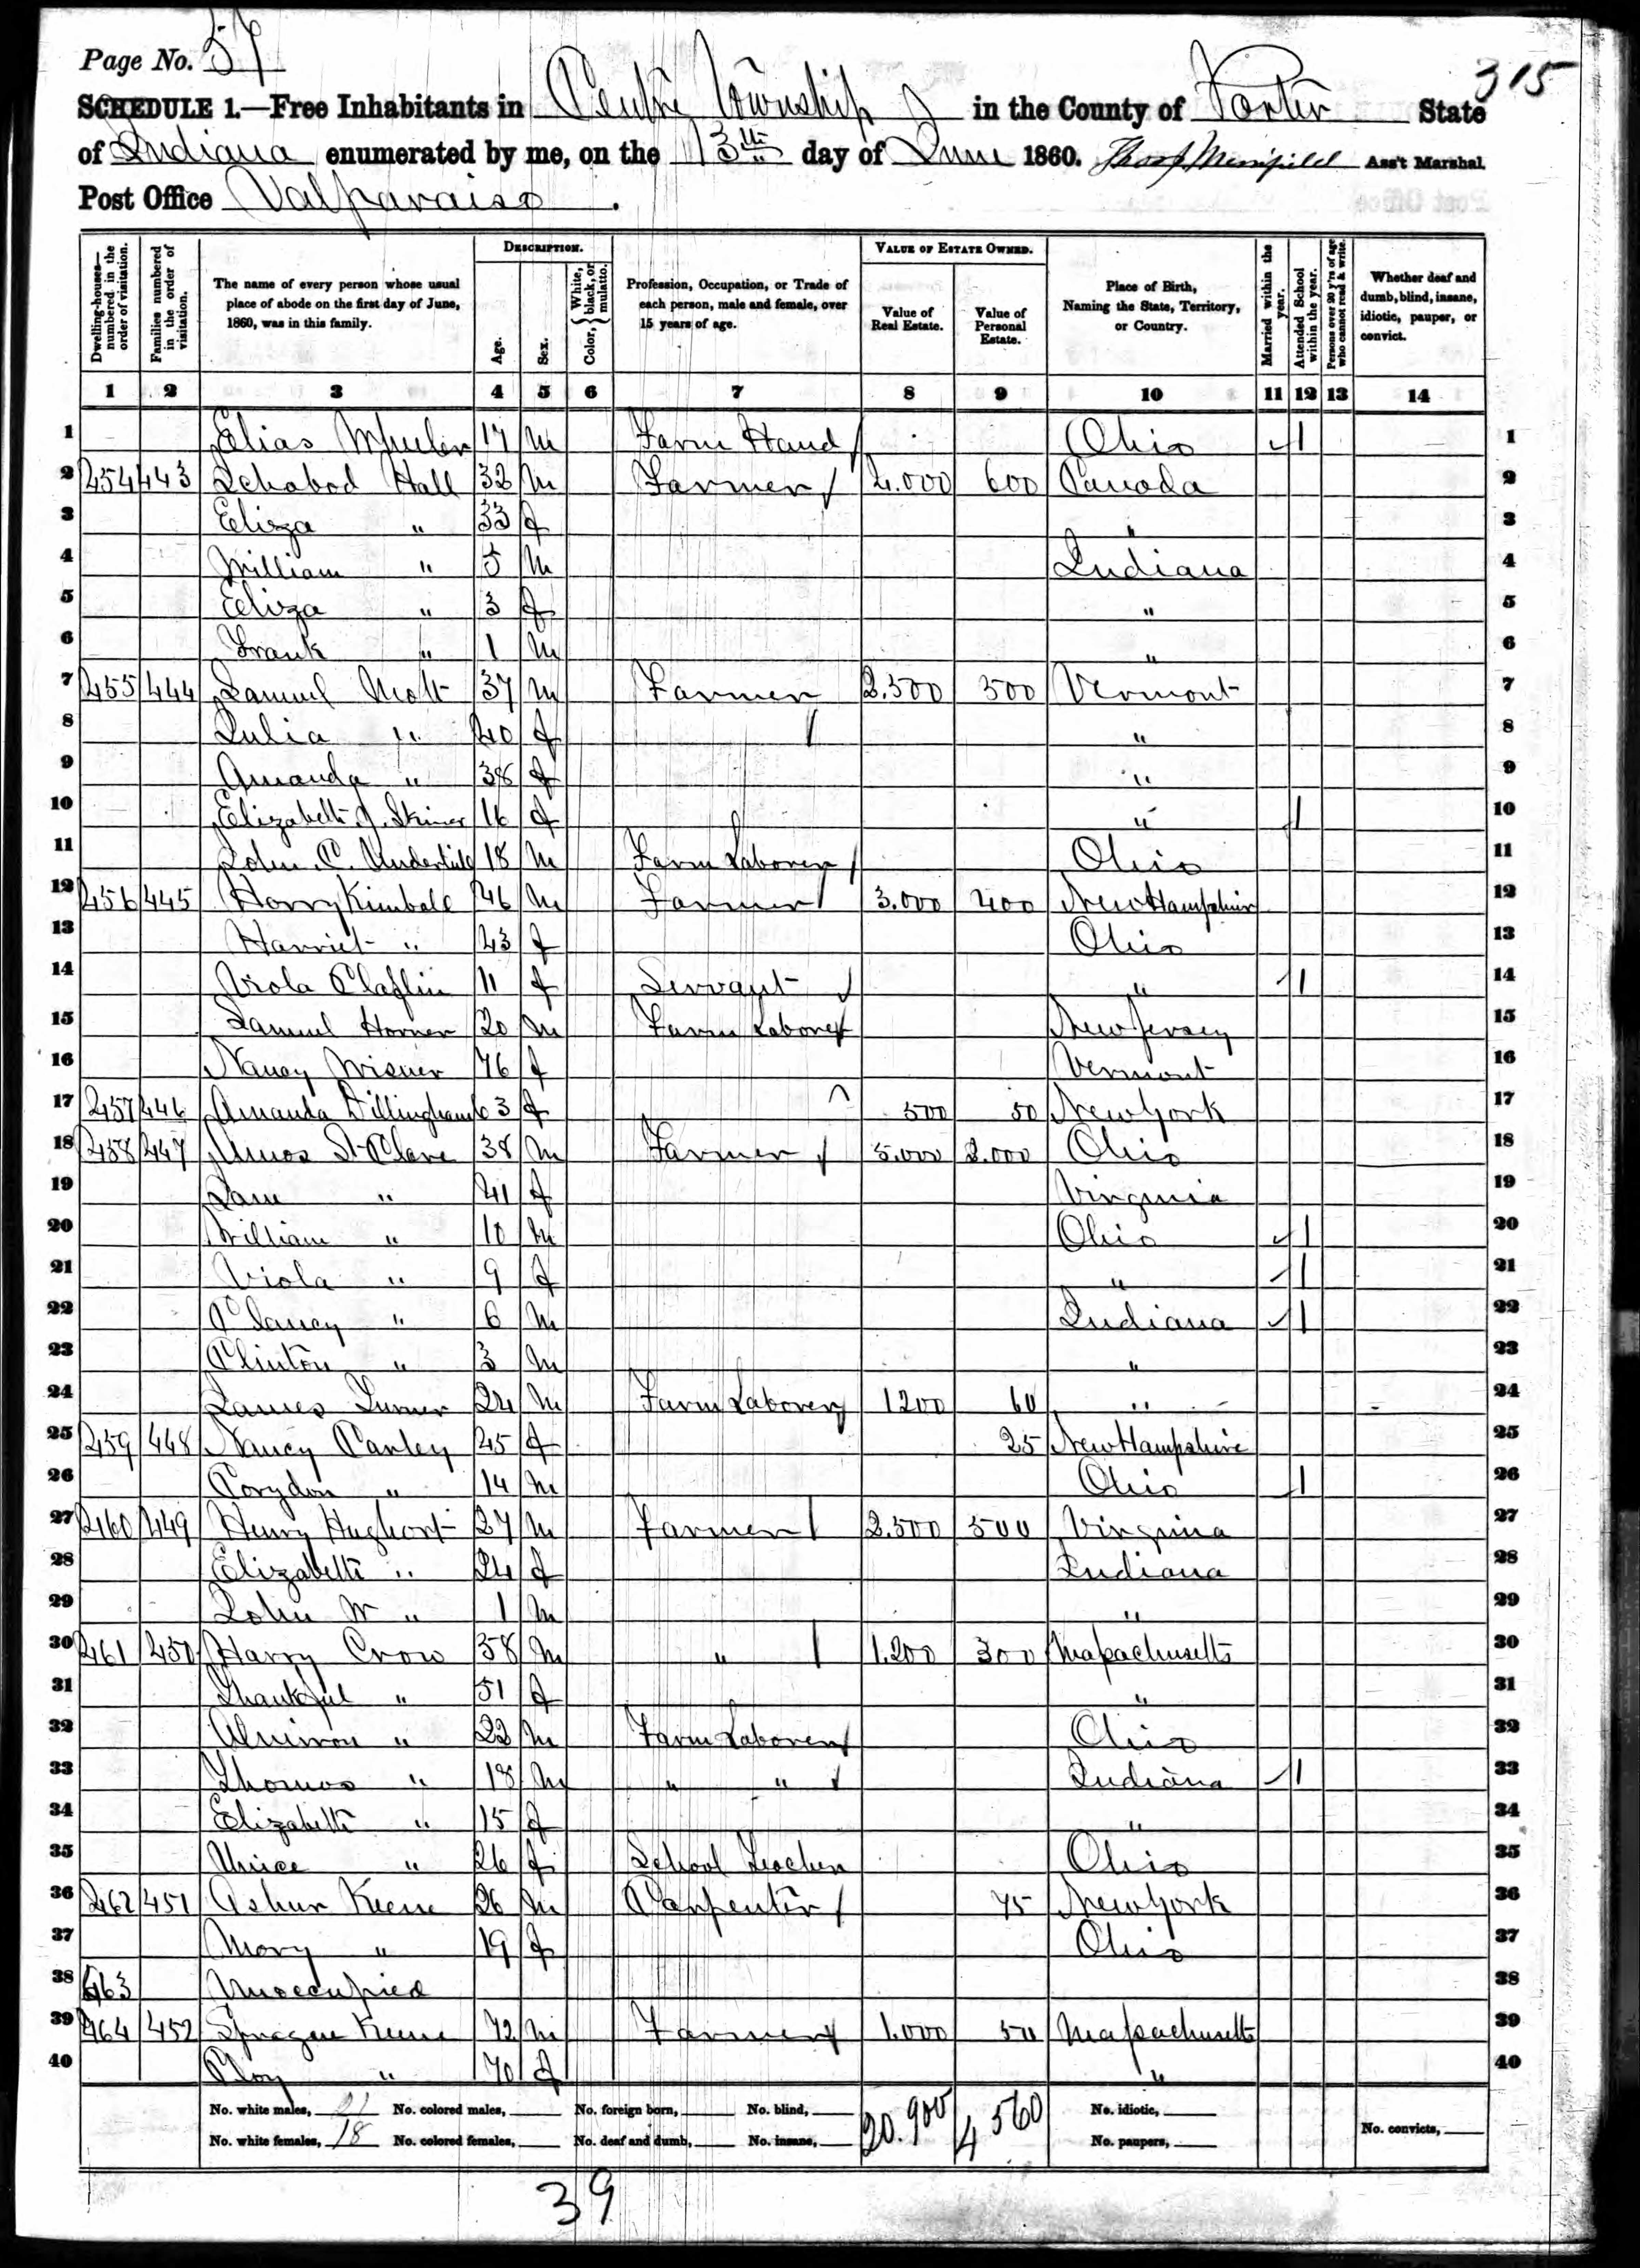 Page No. 57
315
SCHEDULE 1.—Free Inhabitants in Centre Township in the County of Porter State
of Indiana enumerated by me, on the 13th day of June 1860. Ass't Marshal.
Post Office Valparaiso.
Dwelling-houses—numbered in the order of visitation. Families numbered in the order of visitation. The name of every person whose usual place of abode on the first day of June, 1860, was in this family. DESCRIPTION. Age. Sex. Color, {White, black, or mulatto. Profession, Occupation, or Trade of each person, male and female, over 15 years of age. VALUE OF ESTATE OWNED. Value of Real Estate. Value of Personal Estate. Place of Birth, Naming the State, Territory, or Country. Married within the year. Attended School within the year. Persons over 20 y'rs of age who cannot read & write. Whether deaf and dumb, blind, insane, idiotic, pauper, or convict.
1 2 3 4 5 6 7 8 9 10 11 12 13 14
1 Elias Wheeler 17 m Farm Hand Ohio 1 1
2 454 443 Ichabod Hall 32 m Farmer 4.000 600 Canada 2
3 Eliza " 33 f " 3
4 William " 5 m Indiana 4
5 Eliza " 3 f " 5
6 Frank " 1 m " 6
7 455 444 Samuel Mott 37 m Farmer 2.500 500 Vermont 7
8 Julia " 40 f " 8
9 Amanda " 38 f " 9
10 Elizabeth J. Skiner 16 f " 1 10
11 John C. 18 m Farm Laborer Ohio 11
12 456 445 Harry Kimball 46 m Farmer 3.000 400 New Hampshire 12
13 Harriet " 43 f Ohio 13
14 Viola Claflin 11 f Servant " 1 14
15 Samuel Horner 20 m Farm Laborer New Jersey 15
16 Nancy Wisner 76 f Vermont 16
17 457 446 Amanda Dillingham 63 f 500 50 New York 17
18 458 447 Amos St Clare 38 m Farmer 5.000 2.000 Ohio 18
19 Jane " 41 f Virginia 19
20 William " 10 m Ohio 1 20
21 Viola " 9 f " 1 21
22 Clancy " 6 m Indiana 1 22
23 Clinton " 3 m " 23
24 James Turner 24 m Farm Laborer 1200 60 " 24
25 459 448 Nancy Carley 45 f 25 New Hampshire 25
26 Corydon " 14 m Ohio 1 26
27 460 449 Henry Hughart 27 m Farmer 2.500 500 Virginia 27
28 Elizabeth " 24 f Indiana 28
29 John W " 1 m " 29
30 461 450 Harry Crow 58 m " 1.200 300 Massachusetts 30
31 Thankful " 51 f " 31
32 Almiron " 22 m Farm Laborer Ohio 32
33 Thomas " 18 m " " Indiana 1 33
34 Elizabeth " 15 f " 34
35 Unice " 26 f School Teacher Ohio 35
36 462 451 Ashur Keene 26 m Carpenter 75 New York 36
37 Mary " 19 f Ohio 37
38 463 Unoccupied 38
39 464 452 Sprague Keene 72 m Farmer 1.000 50 Massachusetts 39
40 " 70 f " 40
No. white males, 21 No. colored males, No. foreign born, No. blind, 20.900 4560 No. idiotic, No. convicts,
No. white females, 18 No. colored females, No. deaf and dumb, No. insane, No. paupers,
39